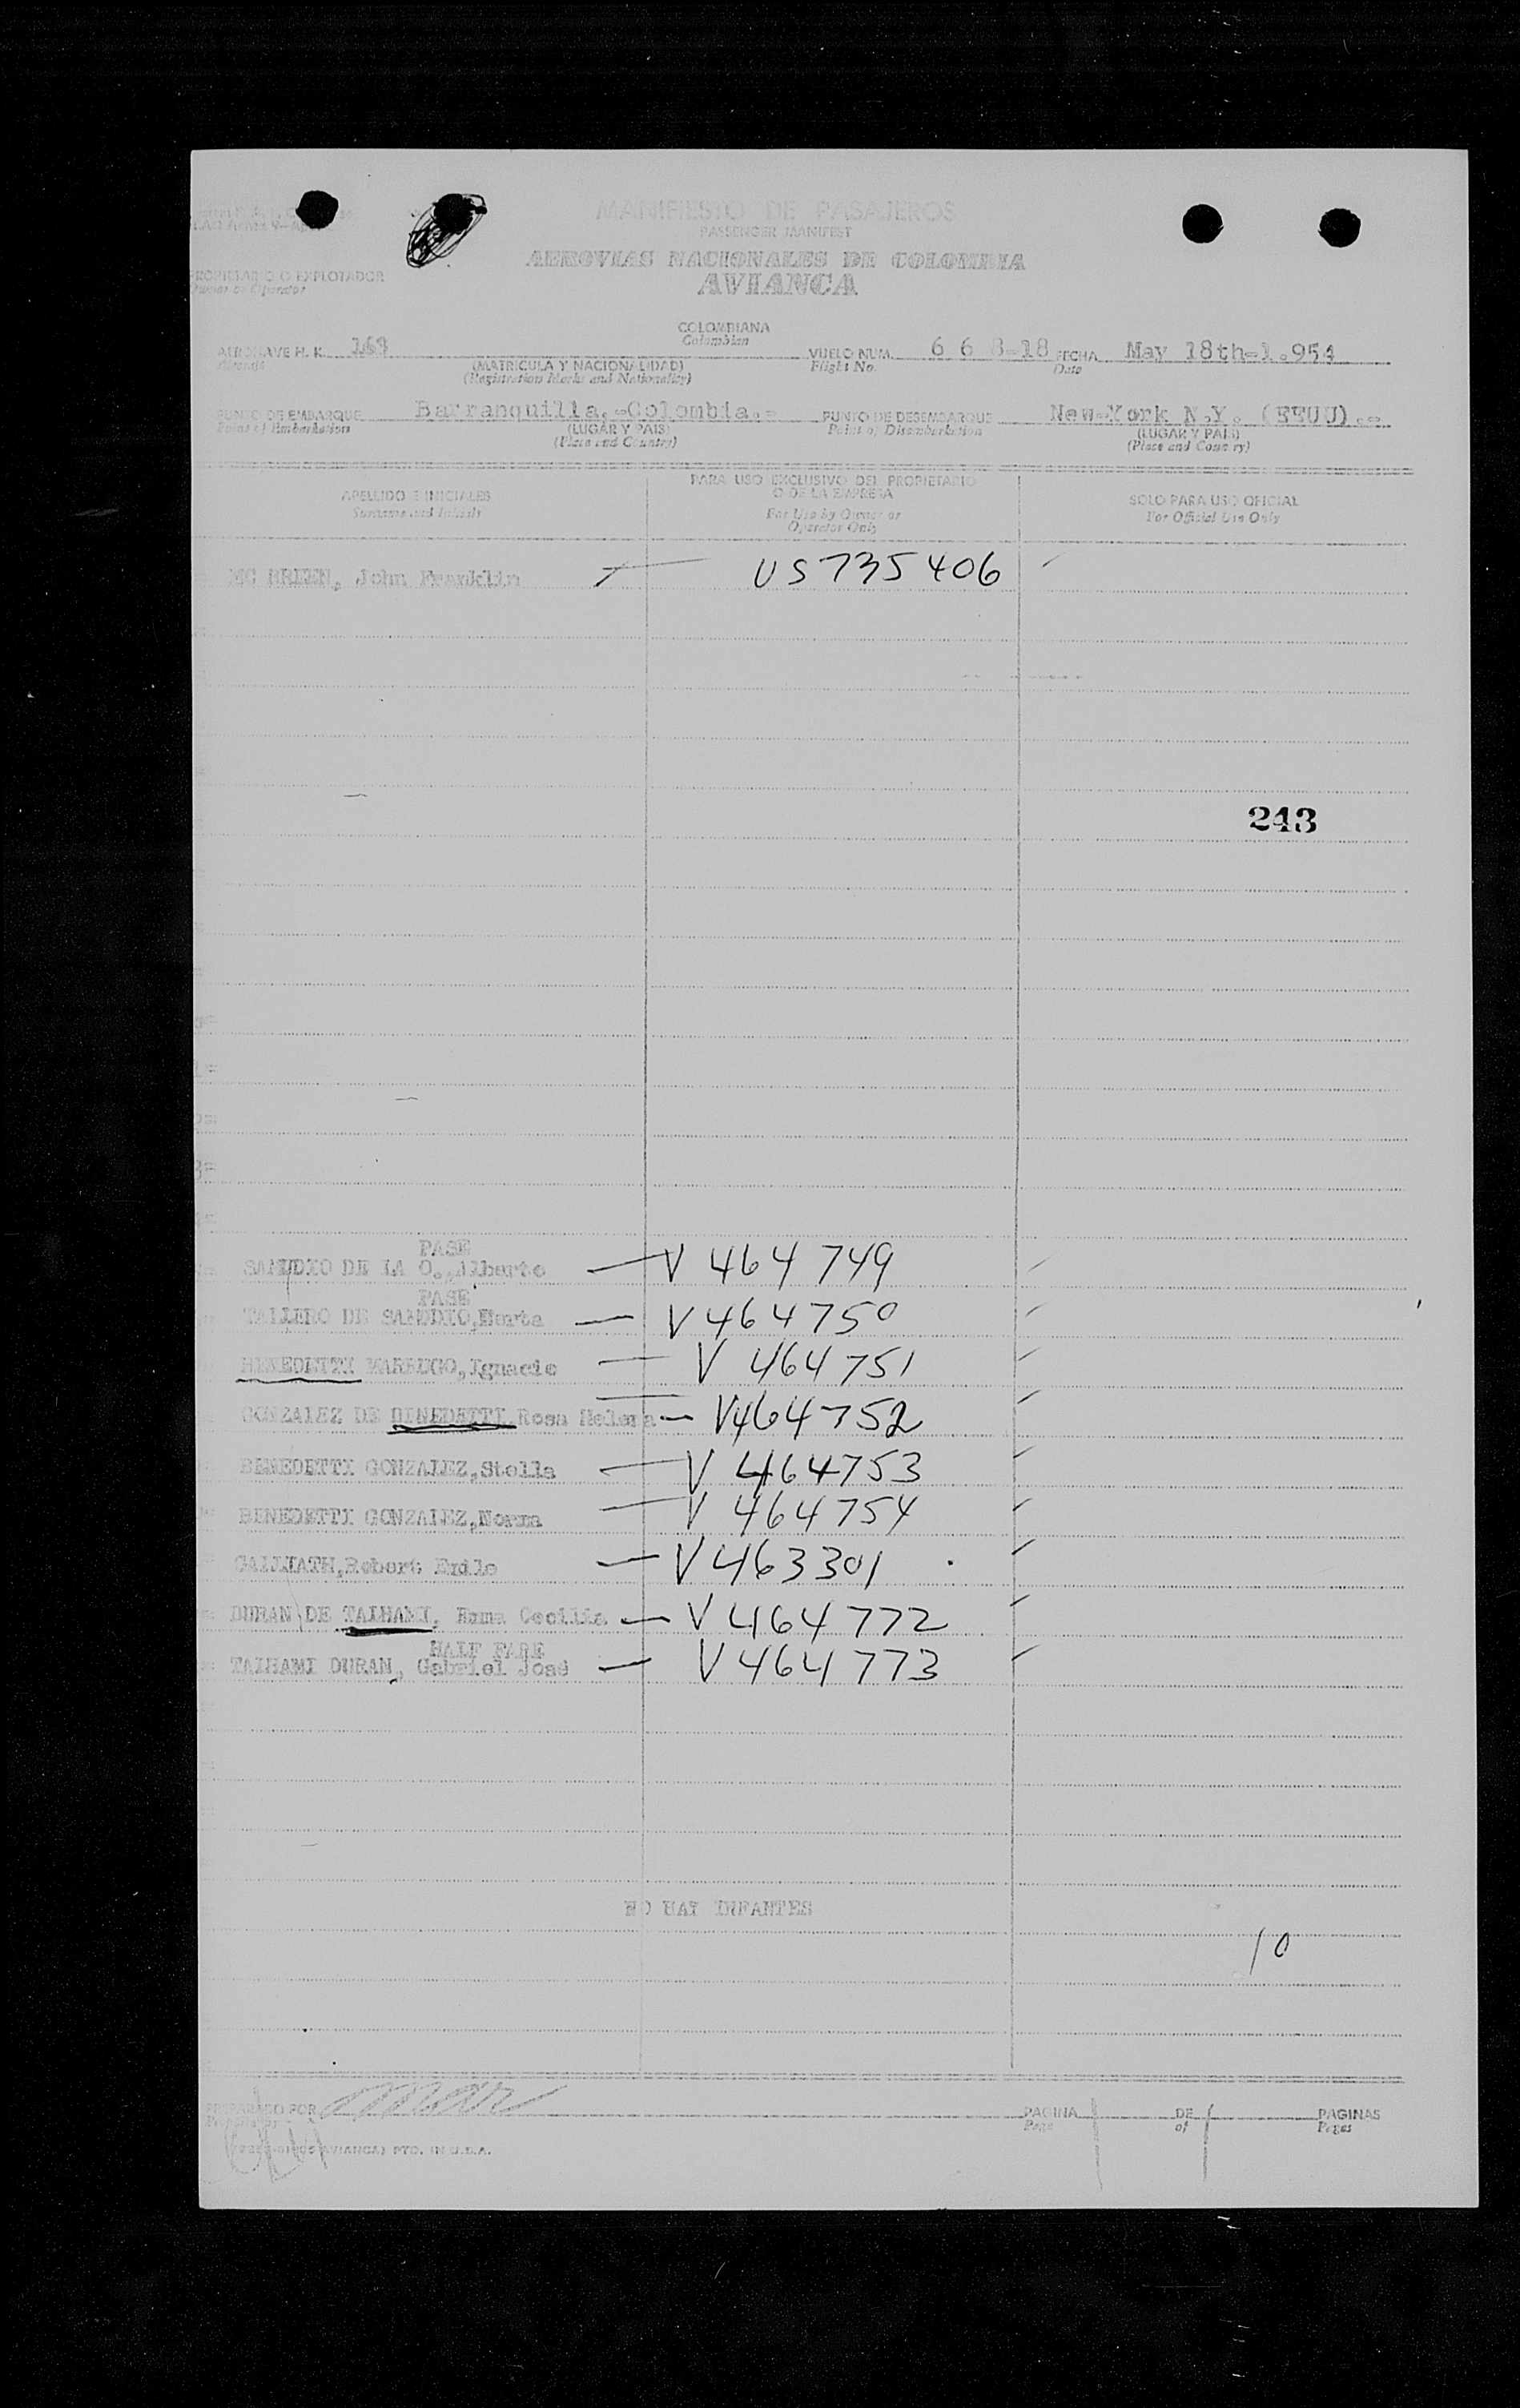 MANIFIESTO DE PASAJEROS
PASSENGER MANIFEST
AEROVIAS NACIONALES DE COLOMBIA
AVIANCA
PROPIETARIO O EXPLOTADOR
Owner or Operator
COLOMBIANA
Colombian
AERONAVE H. K. 169 VUELO NUM. 6 6 8-18 FECHA May 18th-1.954
Aircraft (MATRICULA Y NACIONALIDAD) Flight No. Date
(Registration Marks and Nationality)
PUNTO DE EMBARQUE Barranquilla.-Colombia.- PUNTO DE DESEMBARQUE New-York N.Y. (EEUU).-
Point of Embarkation (LUGAR Y PAIS) Point of Disembarkation (LUGAR Y PAIS)
(Place and Country) (Place and Country)
APELLIDO E INICIALES PARA USO EXCLUSIVO DEL PROPIETARIO O DE LA EMPRESA SOLO PARA USO OFICIAL
Surname and Initials For Use by Owner or Operator Only For Official Use Only
MC BREEN, John Franklin US735406
243
PASE
SAMUDIO DE LA O., Alberto — V 464749
PASE
DE SAMUDIO, — V464750
BENEDETTI MARRUGO, Ignacio — V 464751
GONZALEZ DE BENEDETTI, Rosa Helena — V464752
BENEDETTI GONZALEZ, Stella — V 464753
BENEDETTI GONZALEZ, Norma — V 464754
Robert Emile — V463301
DURAN DE TAIHAMI, Cecilia — V 464772
HALF FARE
TAIHAMI DURAN, Gabriel José — V464773
NO HAY INFANTES
10
PREPARADO POR PAGINA 1 DE 1 PAGINAS
Page of Pages
AVIANCA) PTD. IN U.S.A.